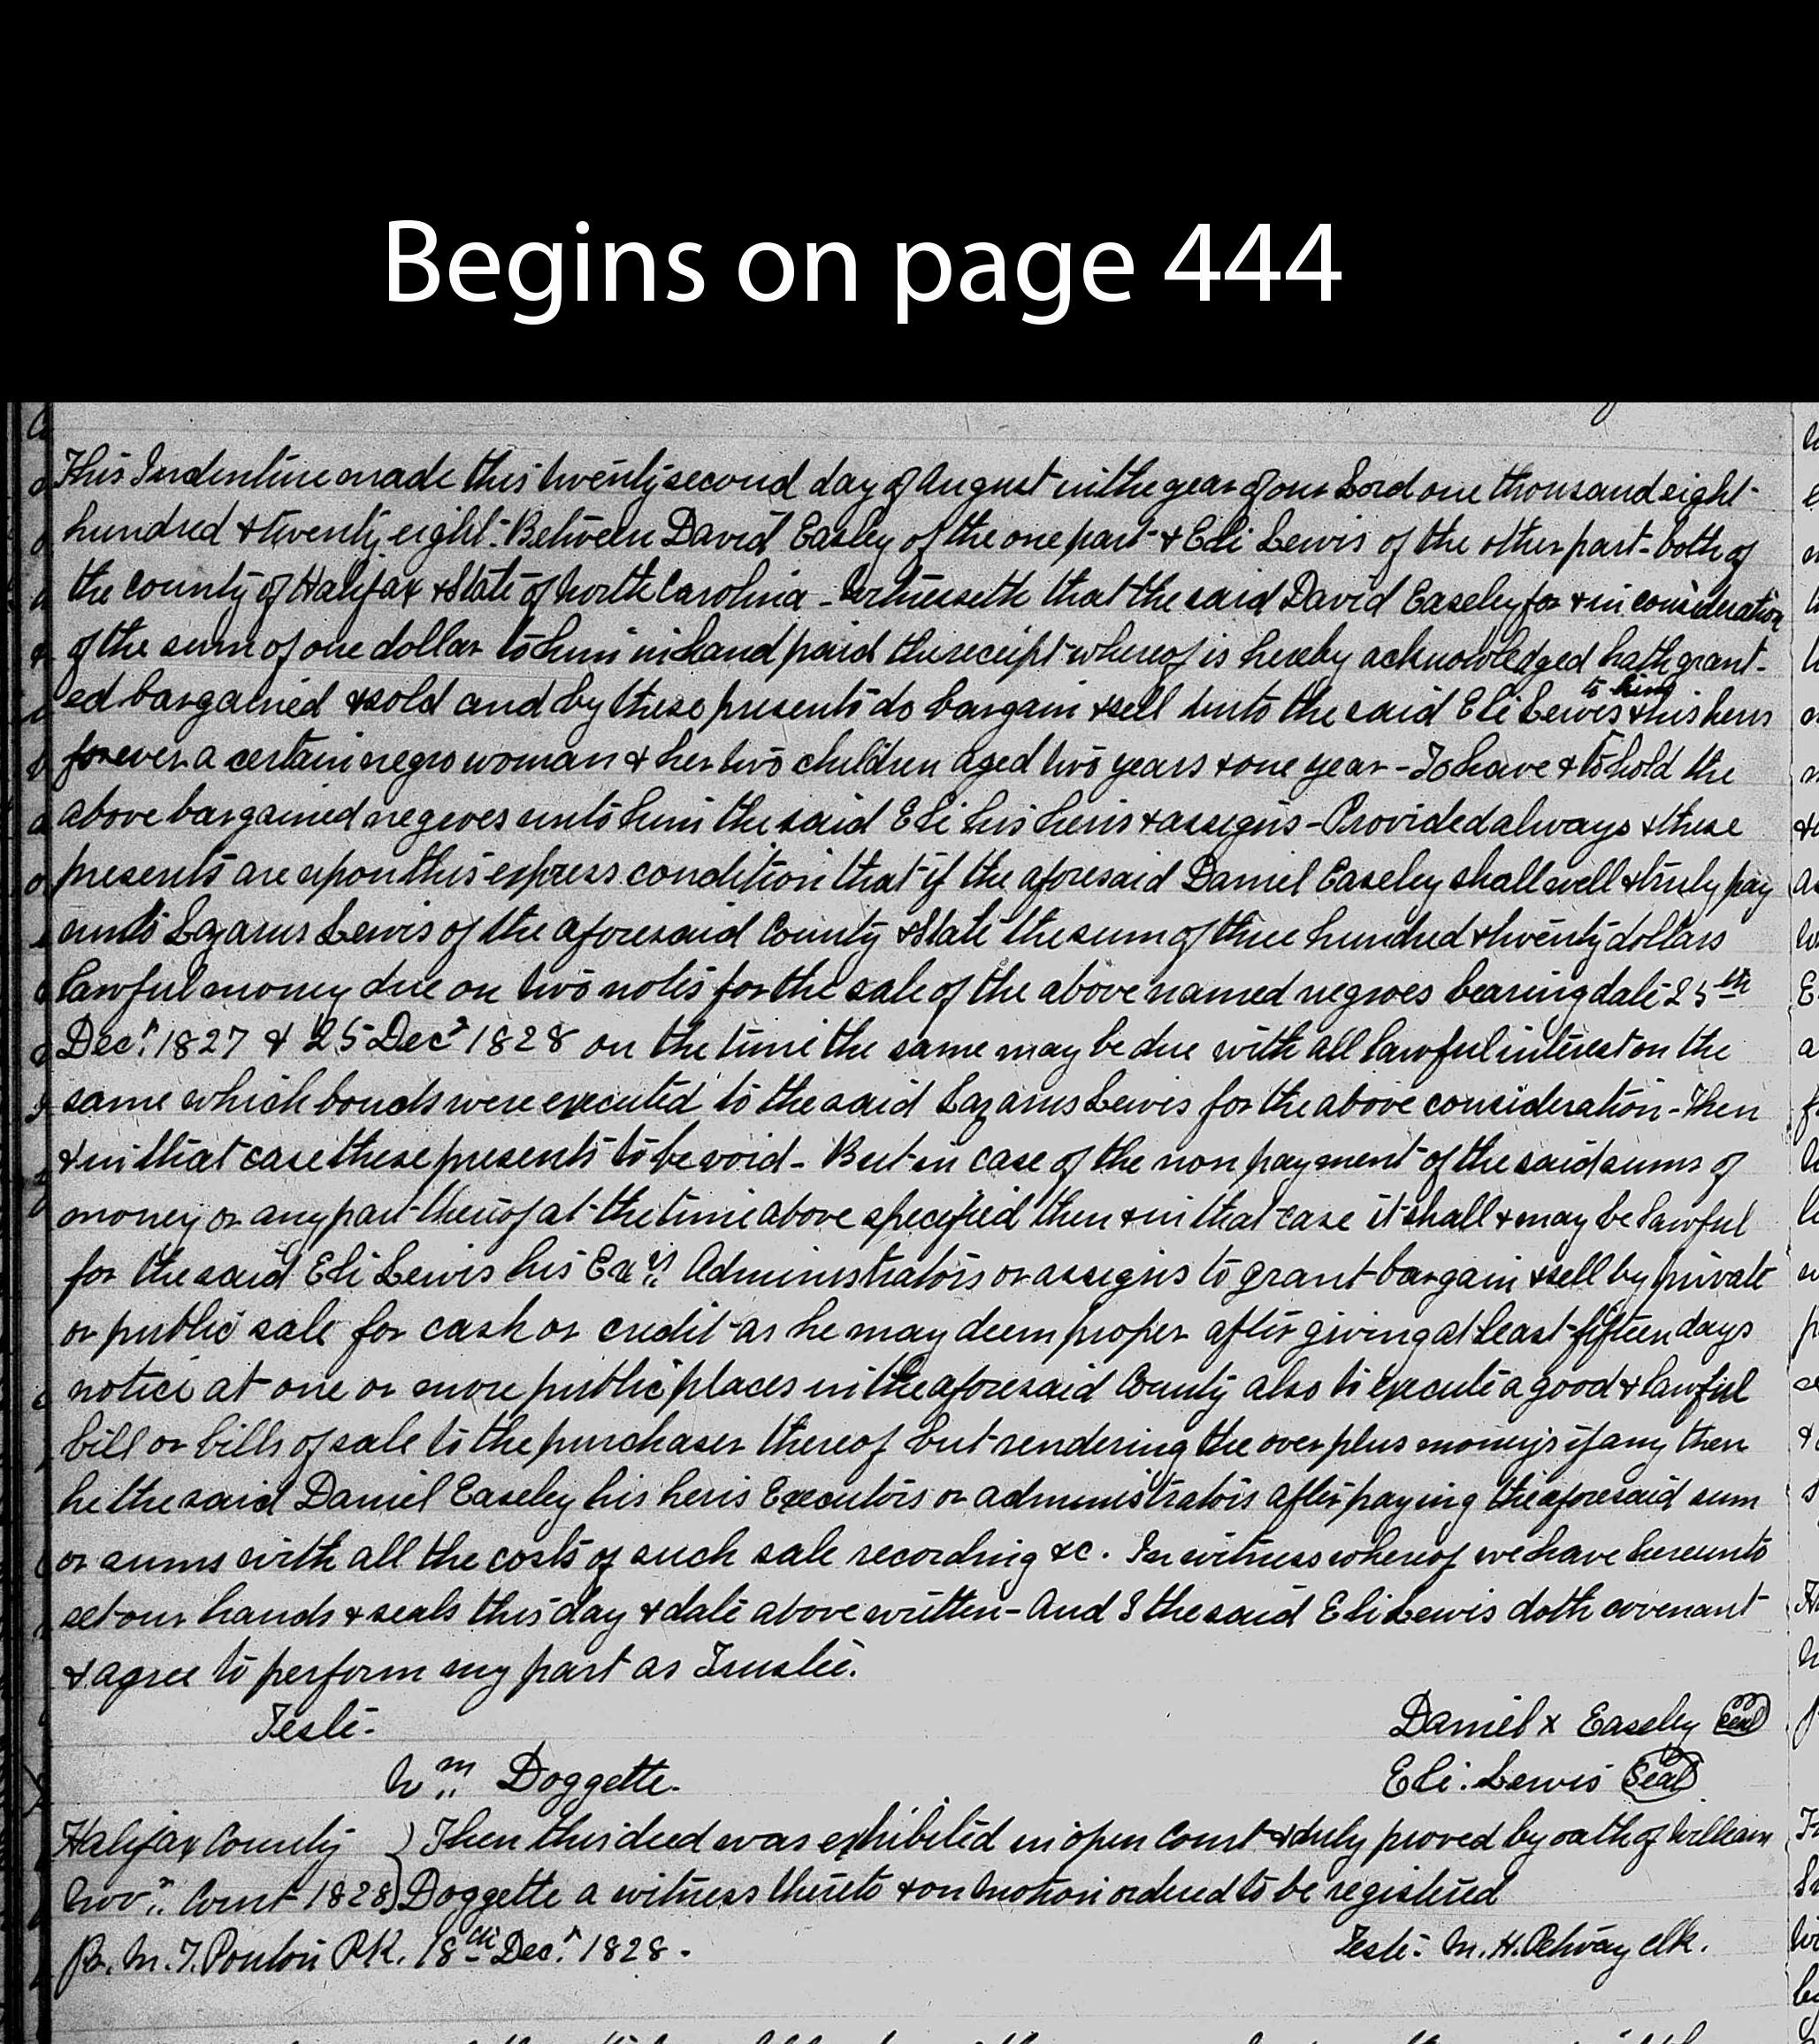 Begins on page 444
This Indenture made this twenty second day of August in the year of our Lord one thousand eight
hundred & twenty eight - Between David Easley of the one part & Eli Lewis of the other part - both of
the county of Halifax & State of North Carolina - Witnesseth that the said David Easeley for & in consideration
of the sum of one dollar to him in hand paid the receipt whereof is hereby acknowledged hath grant-
ed bargained & sold and by these presents do bargain & sell unto the said Eli Lewis to him & his heirs
forever a certain negro woman & her two children aged two years & one year - To have & to hold the
above bargained negroes unto him the said Eli his heirs & assigns - Provided always & these
presents are upon this express condition that if the aforesaid Daniel Easeley shall well & truly pay
unto Lazarus Lewis of the aforesaid County & State the sum of three hundred & twenty dollars
lawful money due on two notes for the sale of the above named negroes bearing date 25th
Decr. 1827 & 25 Decr 1828 on the time the same may be due with all lawful interest on the
same which bonds were executed to the said Lazarus Lewis for the above consideration - Then
& in that case these presents to be void - But in case of the non payment of the said sums of
money or any part thereof at the time above specified then & in that case it shall & may be lawful
for the said Eli Lewis his Exrs. Administrators or assigns to grant bargain & sell by private
or public sale for cash or credit as he may deem proper after giving at least fifteen days
notice at one or more public places in the aforesaid County also to execute a good & lawful
bill or bills of sale to the purchaser thereof but rendering the over plus moneys if any then
he the said Daniel Easeley his heirs Executors or administrators after paying the aforesaid sum
or sums with all the costs of such sale recording &c. In witness whereof we have hereunto
set our hands & seals this day & date above written - And I the said Eli Lewis doth covenant
& agree to perform my part as Trustee.
Teste - Daniel x Easeley Seal
Wm.. Doggette. Eli. Lewis Seal
Halifax County ) Then this deed was exhibited in open Court & duly proved by oath of William
Novr.. Court 1828 ) Doggette a witness thereto & on motion ordered to be registered
pr. M. T. Ponton P.R. 18th Decr. 1828. Teste - M. H. Petway clk.